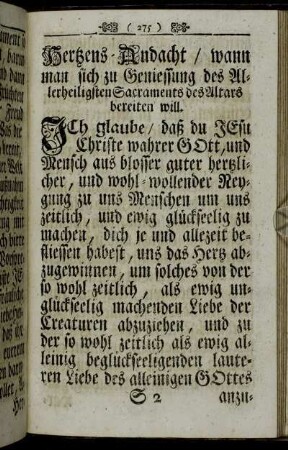 ( 275 )
Hertzens-Andacht / wann
man sich zu Geniessung des Al-
lerheiligsten Sacraments des Altars
bereiten will.
ICh glaube / daß du JEsu
Christe wahrer GOtt, und
Mensch aus blosser guter hertzli-
cher, und wohl-wollender Ney-
gung zu uns Menschen um uns
zeitlich, und ewig glückseelig zu
machen, dich je und allezeit be-
fliessen habest, uns das Hertz ab-
zugewinnen, um solches von der-
so wohl zeitlich, als ewig un-
glückseelig machenden Liebe der
Creaturen abzuziehen, und zu
der so wohl zeitlich als ewig al-
leinig beglückseeligenden laute-
ren Liebe des alleinigen GOttes
S 2 anzu-